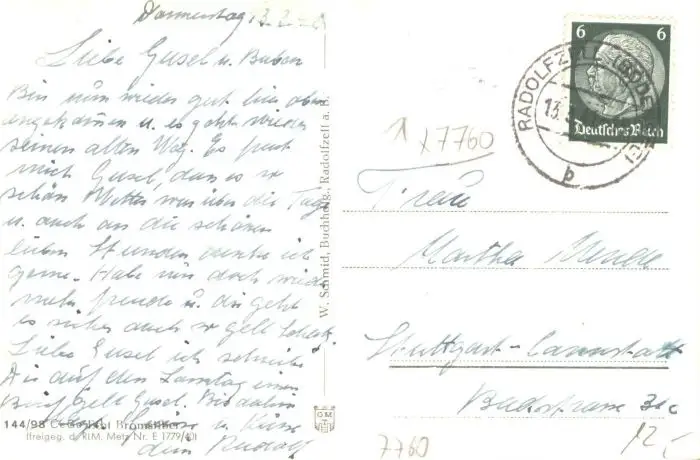 Donnerstag 13.2.
Liebe Gusel u. Buben
Bin nun wieder gut hier oben
angekommen u. es geht wieder
seinen alten Weg. Es freut
mich Gusel, dass es so
schön Wetter war über die Tage
u. auch an die schönen
lieben Stunden denke ich
gerne. Habe nun doch wieder
mehr freude u. dir geht
es sicher auch so gelt Schatz.
Liebe Gusel ich schreibe
Dir auf den Samstag einen
Brief gelt Gusel. Bis dahin
u. Küsse
dein Rudolf
144/98
(freigeg. d. RLM. Metz Nr. E 1779/40)
W. Schmid, Buchholg., Radolfzell a. B.
OM
6 6
Deutsches Reich
RADOLFZELL (BODENSEE)
13.
b
x7760
Frau
Martha
Stuttgart-Cannstatt
Badstrasse 31c
7760
12,-